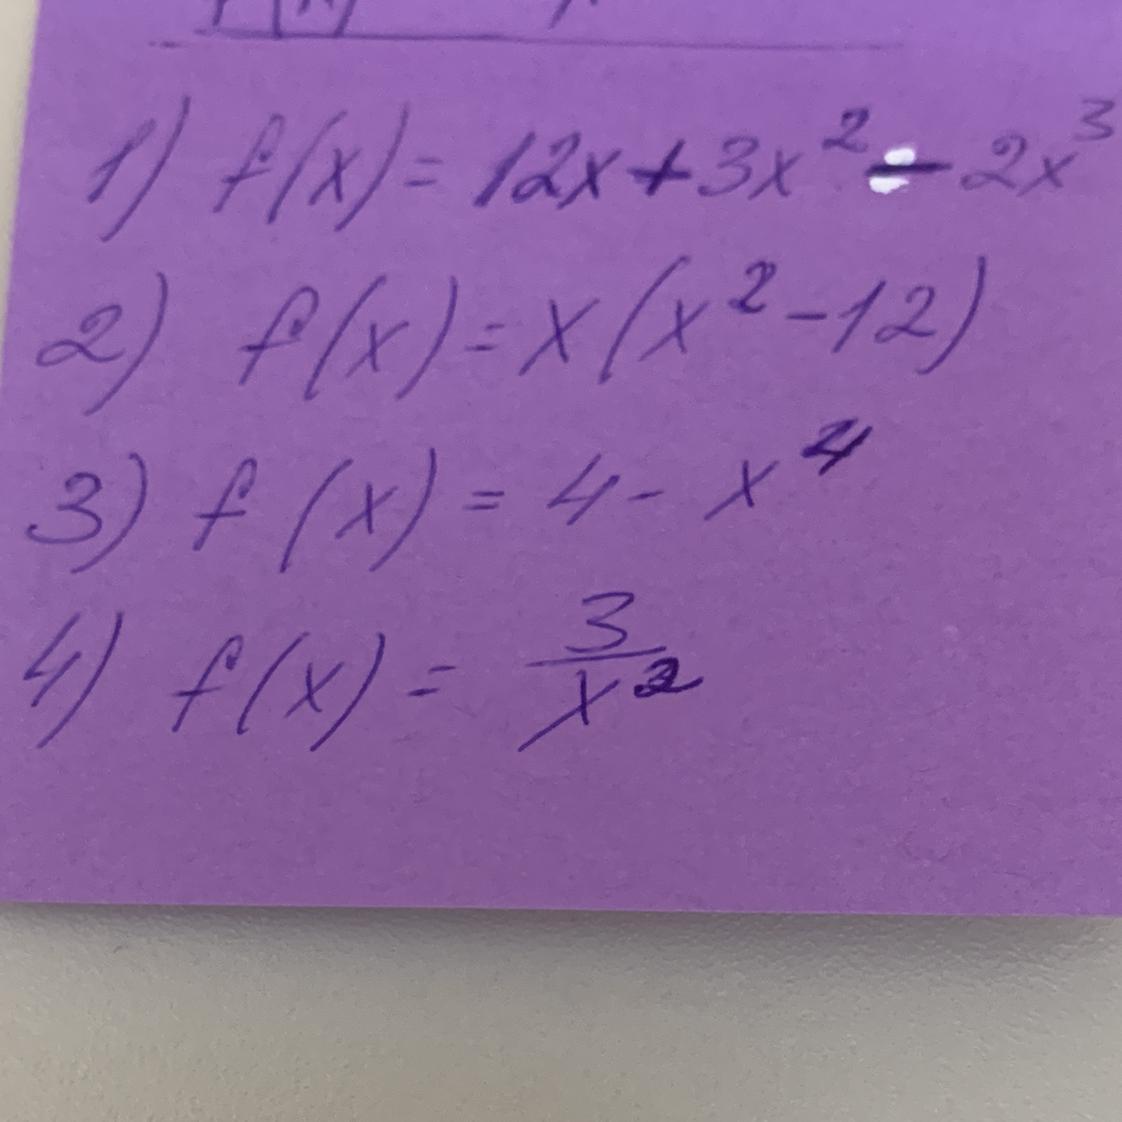 1) f(x) = 12x + 3x² - 2x³
2) f(x) = x(x² - 12)
3) f(x) = 4 - x⁴
4) f(x) = 3/x²